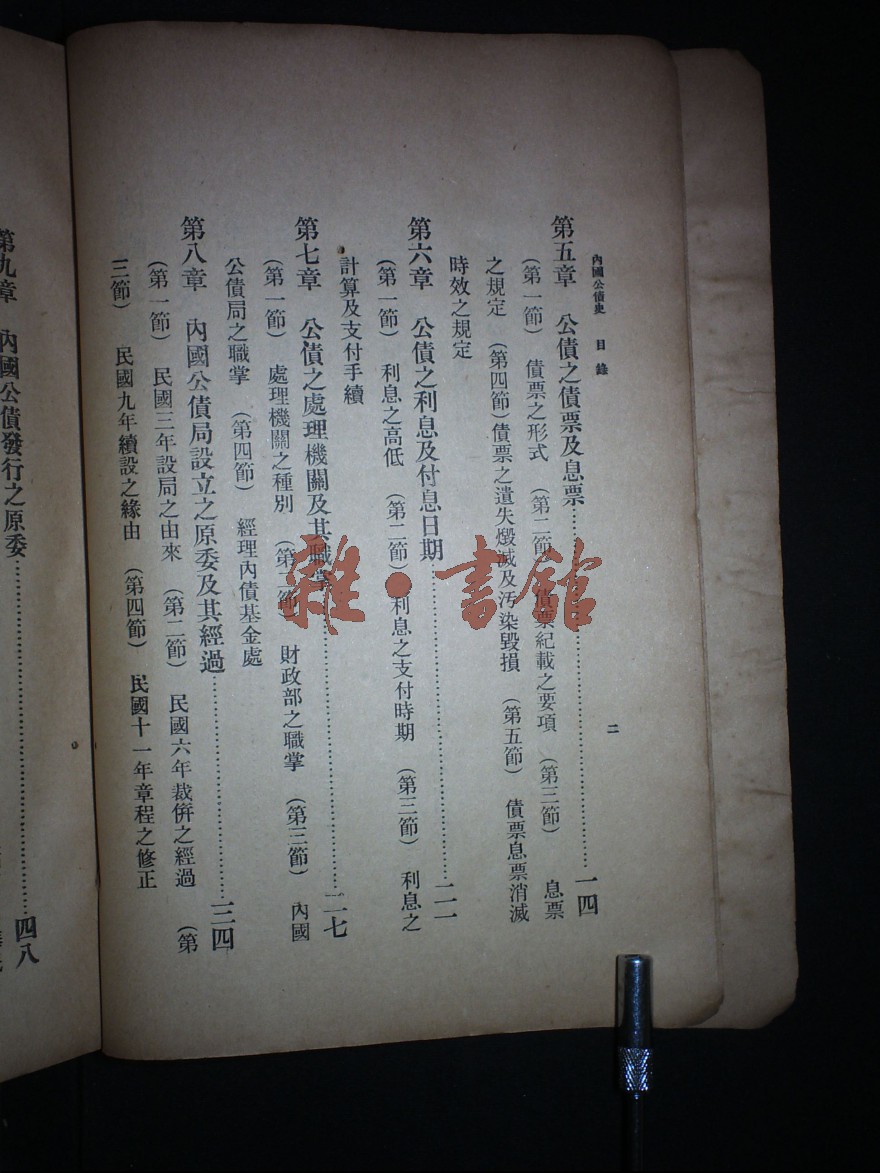 內國公債史 目錄
二
第五章 公債之債票及息票……一四
（第一節） 債票之形式 （第二節） 債票紀載之要項 （第三節） 息票
之規定 （第四節）債票之遺失燬滅及汚染毀損 （第五節） 債票息票消滅
時效之規定
第六章 公債之利息及付息日期……二一
（第一節） 利息之高低 （第二節）利息之支付時期 （第三節） 利息之
計算及支付手續
第七章 公債之處理機關及其職掌……二七
（第一節） 處理機關之種別 （第二節） 財政部之職掌 （第三節） 內國
公債局之職掌 （第四節） 經理內債基金處
第八章 內國公債局設立之原委及其經過……三四
（第一節） 民國三年設局之由來 （第二節） 民國六年裁倂之經過 （第
三節） 民國九年續設之緣由 （第四節） 民國十一年章程之修正
第九章 內國公債發行之原委……四八
雜·書館